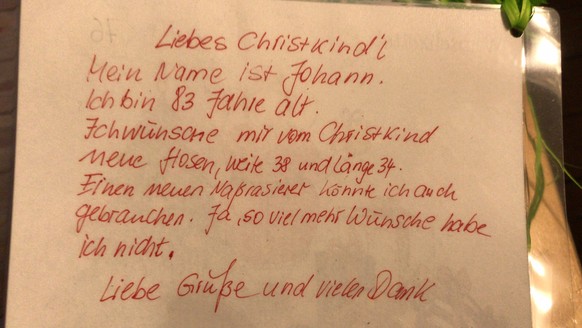 Liebes Christkind'l
Mein Name ist Johann.
Ich bin 83 Jahre alt.
Ich wünsche mir vom Christkind
neue Hosen, Weite 38 und Länge 34.
Einen neuen Naßrasierer könnte ich auch
gebrauchen. Ja, so viel mehr Wünsche habe
ich nicht.
Liebe Grüße und vielen Dank